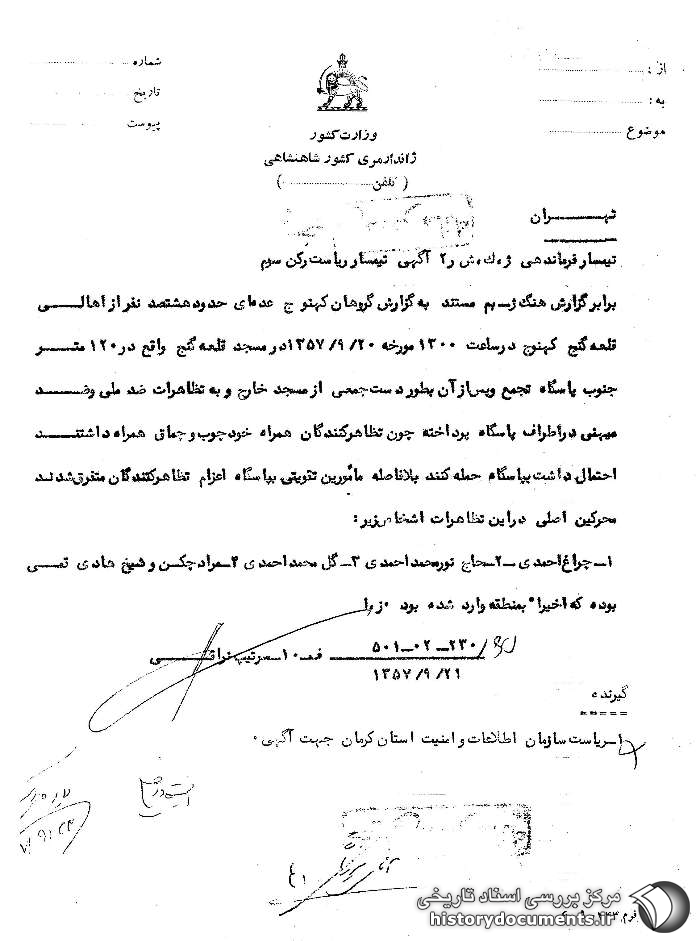 از :
به :
موضوع
شماره
تاریخ
پیوست
وزارت کشور
ژاندارمری کشور شاهنشاهی
( تلفن )
تهـــــران
تیمسار فرماندهی ژ.ك.ش ر۲ آگهی تیمسار ریاست رکن سوم
برابر گزارش هنگ ژـ بم مستند به گزارش گروهان کهنوج عده‌ای حدود هشتصد نفر از اهالـــی
قلعه گنج کهنوج در ساعت ۱۳۰۰ مورخه ۱۳۵۷/۹/۲۰ در مسجد قلعه گنج واقع در ۱۲۰ متـــر
جنوب پاسگاه تجمع و پس از آن بطور دست جمعی از مسجد خارج و به تظاهرات ضد ملی و ضـــد
میهنی در اطراف پاسگاه پرداخته چون تظاهرکنندگان همراه خود چوب و چماق همراه داشتنـــد
احتمال داشت بپاسگاه حمله کنند بلافاصله مأمورین تقویتی بپاسگاه اعزام تظاهرکنندگان متفرق شدند
محرکین اصلی در این تظاهرات اشخاص زیر :
۱ـ چراغ احمدی ۲ـ حاج نورمحمد احمدی ۳ـ گل محمد احمدی ۴ـ مراد چکسن و شیخ هادی
بوده که اخیراً بمنطقه وارد شده بود
۵۰۱ــ۰۲ــ۲۳۰/
۱۳۵۷/۹/۲۱
سرتیپ
گیرنده
=====
۱ـ ریاست سازمان اطلاعات و امنیت استان کرمان جهت آگهی .
مرکز بررسی اسناد تاریخی
historydocuments.ir
فرم